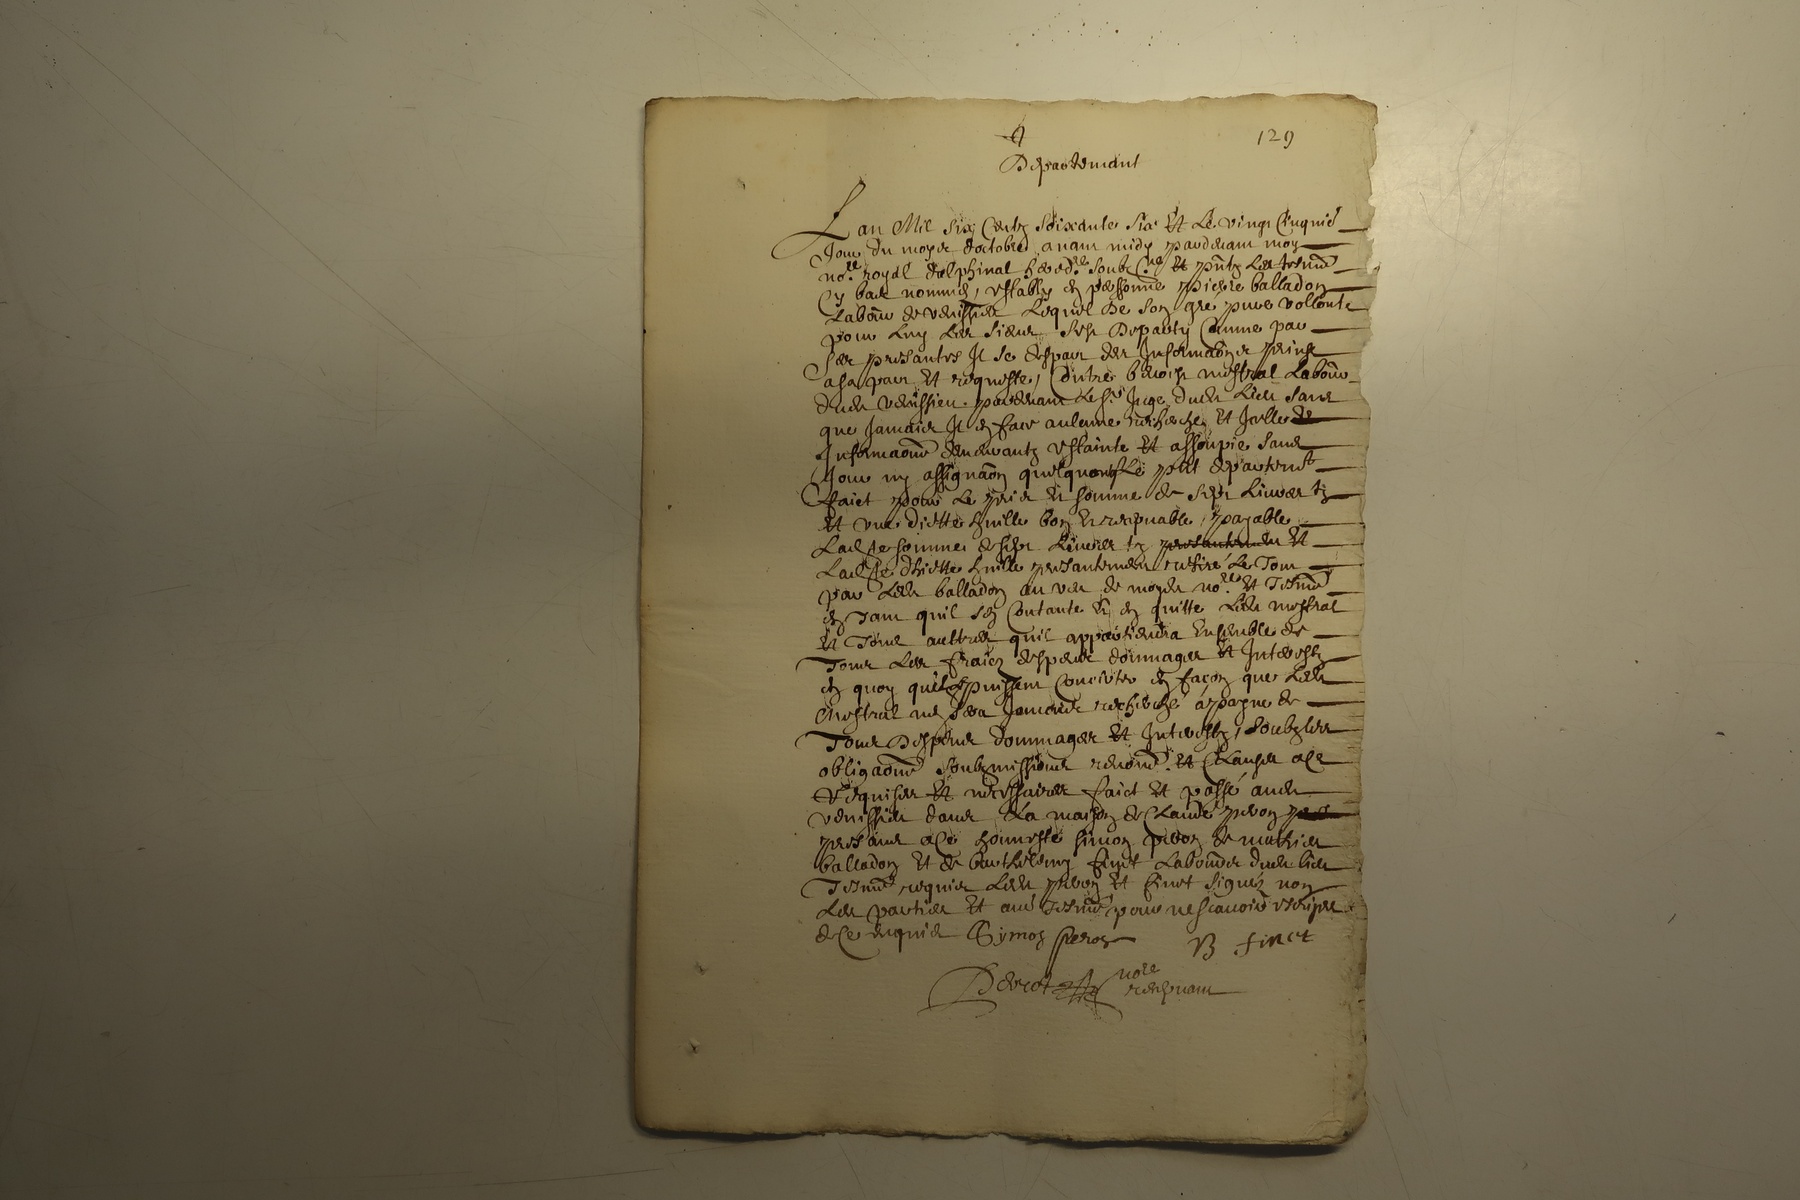 129
Departemant
L an Mil six Centz Soixante Six Et Le vingt Cinquie
Jour du moys doctobre auant midy pardeuant moy
no.re royal delphinal hered.re soubz.né Et pñtz Les tesmñ
Cy bas nommes, estably en personne pierre balladon
Labour de verissieu Lequel De son gré pure vollonte
pour Luy Les siens sest Departy Comme par
Ses presantes Il se despart des Informaõns prinse
a sa part Et requeste, Contre benoist mestral Labour
dudit verissieu pardeuant Le s.r Juge dudit Lieu sans
que Jamais Il en face aulcune recherche Et Icelles
Informaõns demeurantz estainte Et assoupie sans
Jour ny assignaõn quelquonq Le pñt departem.t
faict pour Le prix Et somme de sept Liures tz
Et vne huille bon Et receptuable, payable
Lad.te somme de sept Liures tz presantement Et
Lad.te huille presantement retiré Le Tout
par Ledit balladon au veu de moydit no.re Et Tesmñ
en Tant quil sen Contante Et en quitte Ledit mestral
Et Tous aultres quil appartiendra Ensemble de
Tous Les fraiz despens dommages Et Interestz
en quoy quilz puissent Concister en façon que Ledit
Mestral ne sera Jamais recherché a peyne de
Tous Despens dommages Et Interestz, soubz Les
obligaõns soubzmissions renonõn Et Clauses a Ce
Requises Et necessaires faict Et passé audit
verissieu dans La maison de Claude peron
presans a Ce honneste simon peron de mathieu
balladon Et de barthelemy finet Labours dudit lieu
Tesmñ requis Ledit peron Et finet signés non
Les parties Et au.e Tesmñ pour ne scauoir escripre
de Ce enquis Symon peron B finet
no.re